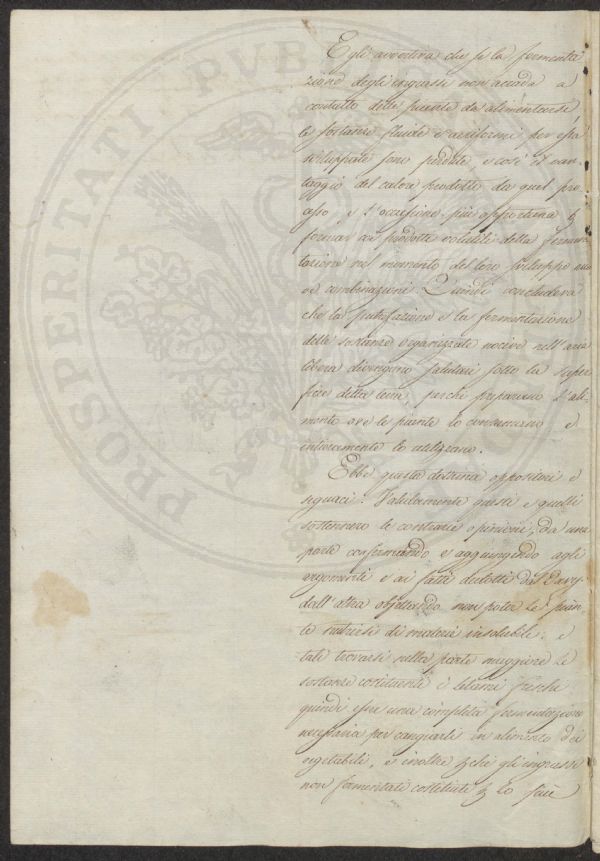 Egli avvertiva che se la fermenta
zione degli ingrassi non accada a
contatto delle piante da alimentarsi,
le sostanze fluide e aeriformi per essa
sviluppate sono perdute, e così il van-
taggio del calore prodotto da quel pro-
cesso, e l'occasione più opportuna p
formar coi prodotti volatili della fermen
tazione nel momento del loro sviluppo nuo
ve combinazioni. Quindi concludeva
che la putrefazione e la fermentazione
delle sostanze organizzate nocive nell'aria
libera divengono salutari sotto la super
ficie della terra, perchè preparano l'ali-
mento ove le piante lo consumano e
intieramente lo utilizzano.
Ebbe questa dottrina oppositori e
seguaci. Validamente questi e quelli
sostennero le contrarie opinioni, da una
parte confermando e aggiungendo agli
argomenti e ai fatti dedotti dal Davy,
dall'altra obiettando non poter le pian
te nutrirsi di materie insolubili: e
tali trovarsi nella parte maggiore le
sostanze costituenti i letami freschi
quindi esser una completa fermentazione
necessaria per cangiarle in alimento dei
vegetabili, e inoltre che gli ingrassi
non fermentati costituiti p lo più